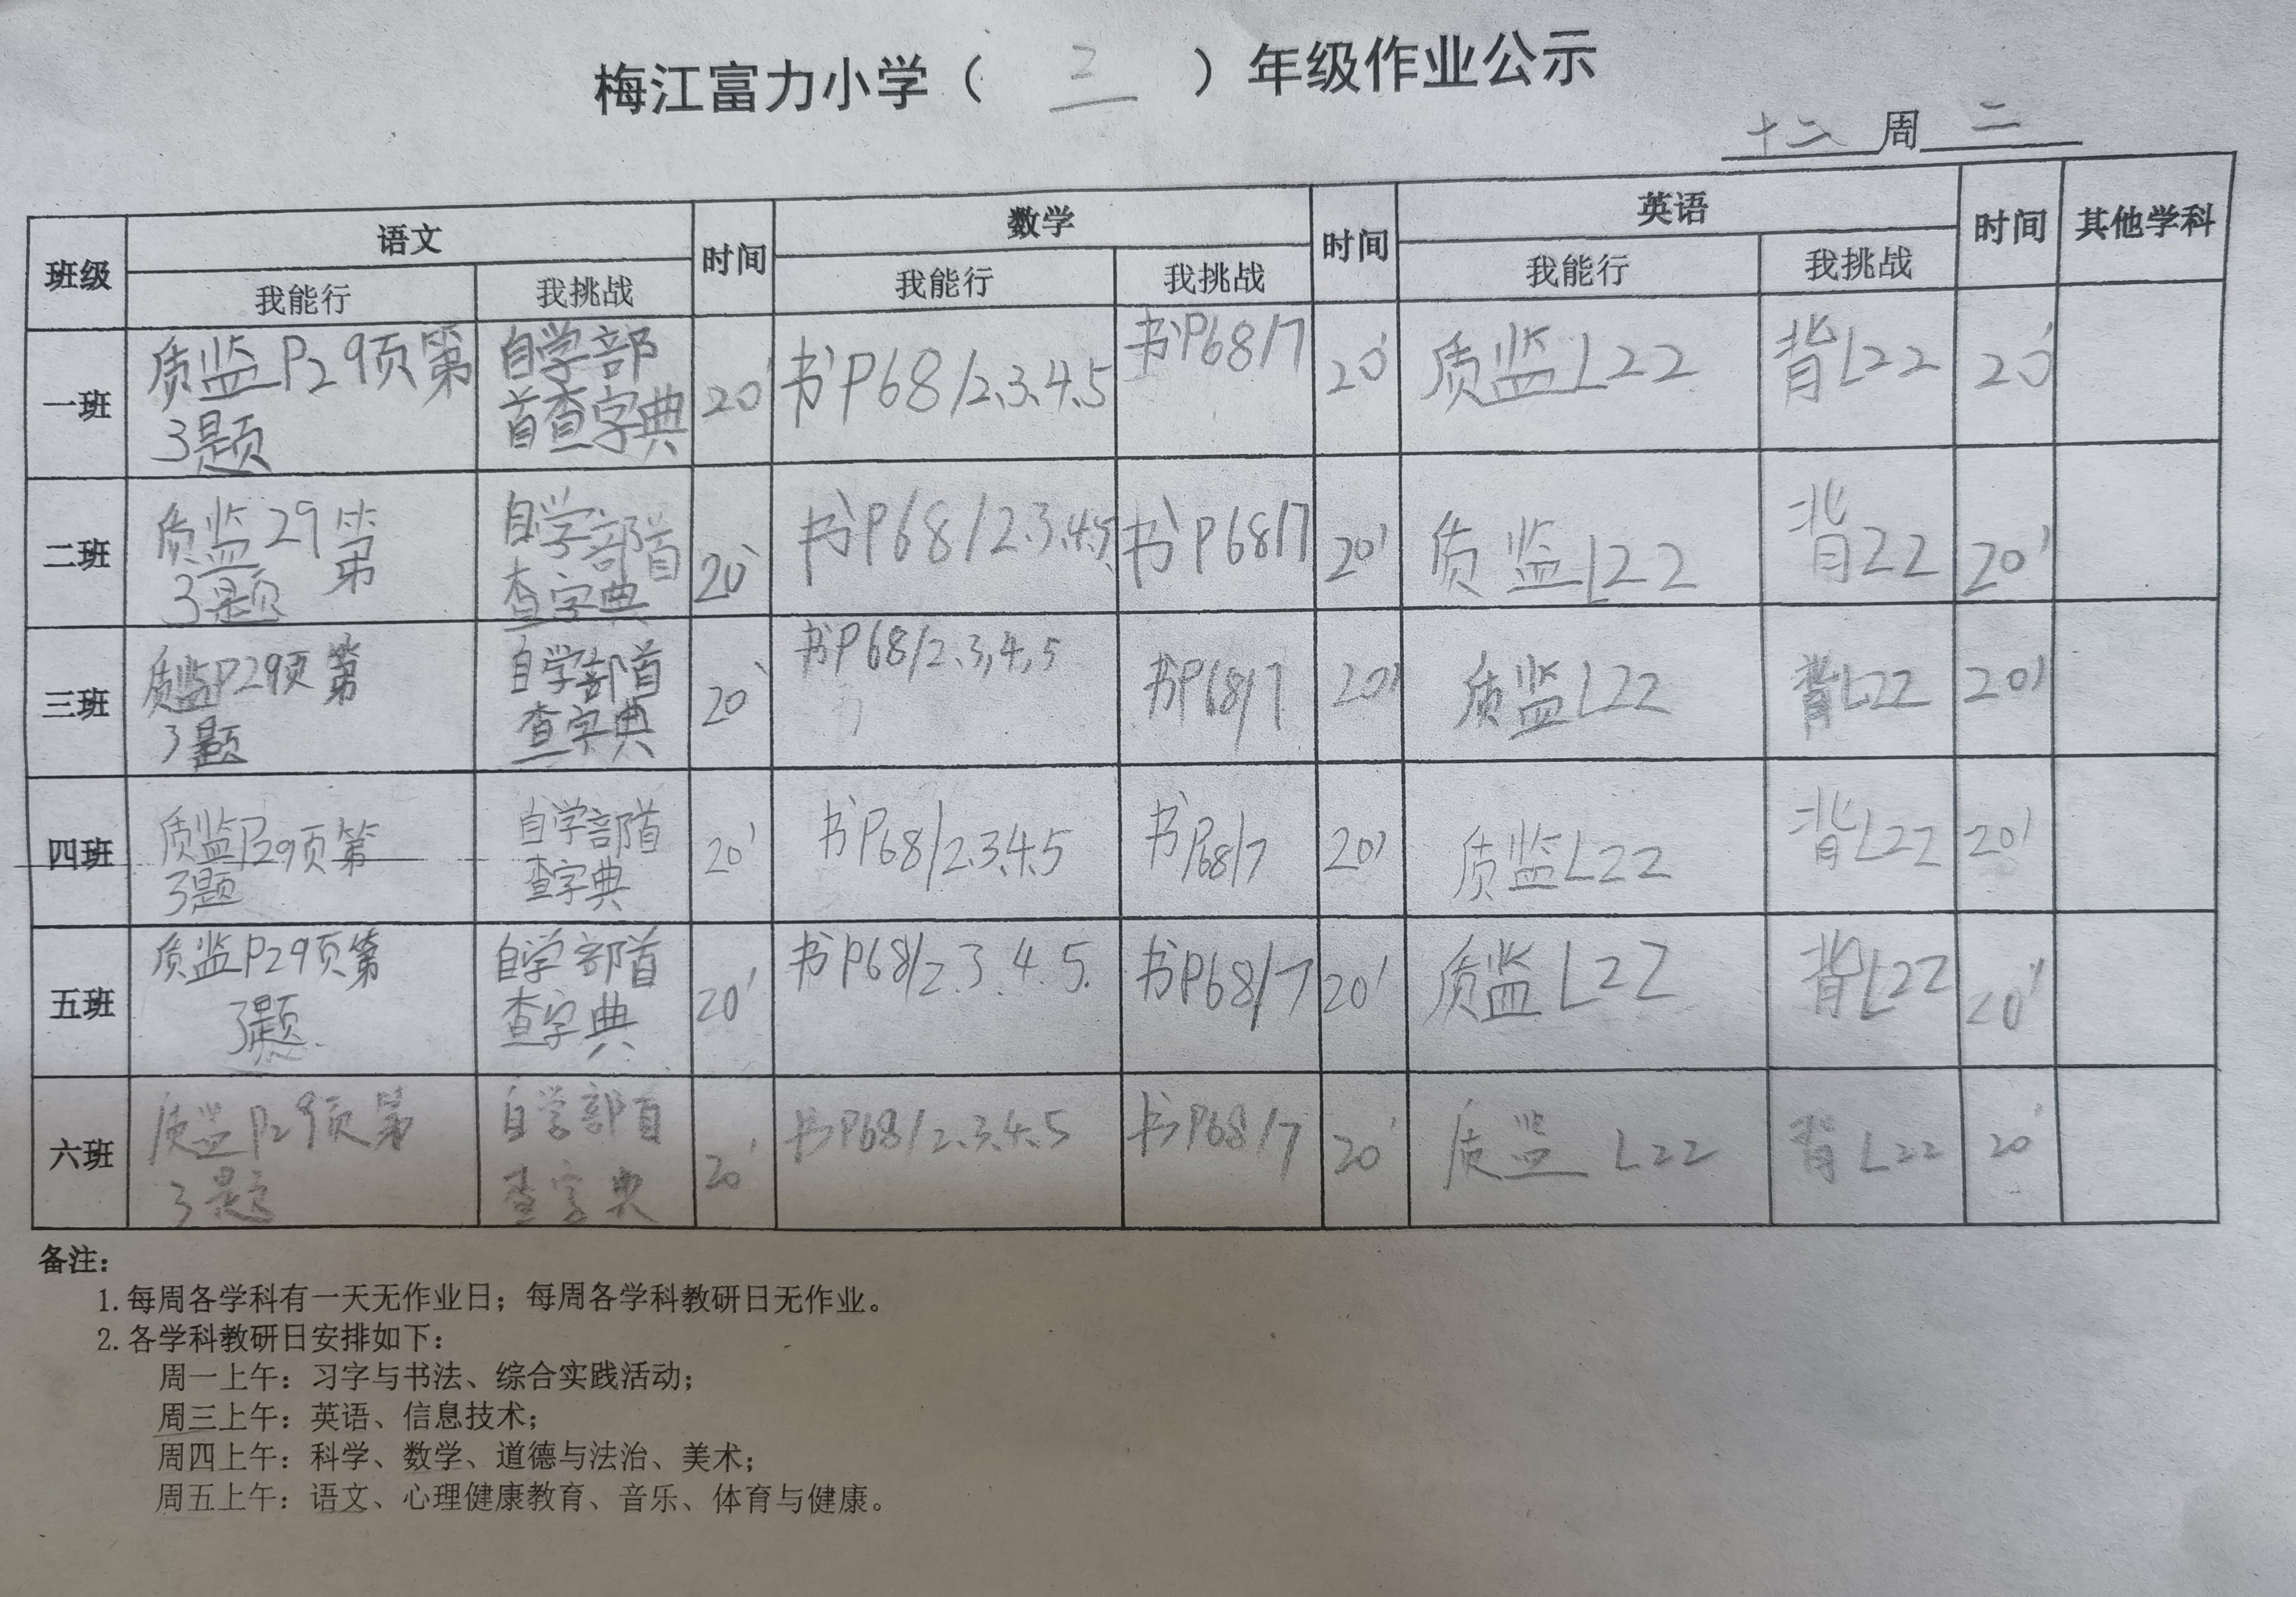 梅江富力小学（ 二 ）年级作业公示
十二 周 二
班级 语文 时间 数学 时间 英语 时间 其他学科
我能行 我挑战 我能行 我挑战 我能行 我挑战
一班 质监P29页第3题 自学部首查字典 20' 书P68/2、3、4、5 书P68/7 20' 质监L22 背L22 20'
二班 质监29第3题 自学部首查字典 20' 书P68/2、3、4、5 书P68/7 20' 质监L22 背L22 20'
三班 质监P29页第3题 自学部首查字典 20' 书P68/2、3、4、5 书P68/7 20' 质监L22 背L22 20'
四班 质监P29页第3题 自学部首查字典 20' 书P68/2、3、4、5 书P68/7 20' 质监L22 背L22 20'
五班 质监P29页第3题 自学部首查字典 20' 书P68/2、3、4、5. 书P68/7 20' 质监L22 背L22 20'
六班 质监P29页第3题 自学部首查字典 20' 书P68/2、3、4、5 书P68/7 20' 质监L22 背L22 20'
备注：
1.每周各学科有一天无作业日；每周各学科教研日无作业。
2.各学科教研日安排如下：
周一上午：习字与书法、综合实践活动；
周三上午：英语、信息技术；
周四上午：科学、数学、道德与法治、美术；
周五上午：语文、心理健康教育、音乐、体育与健康。